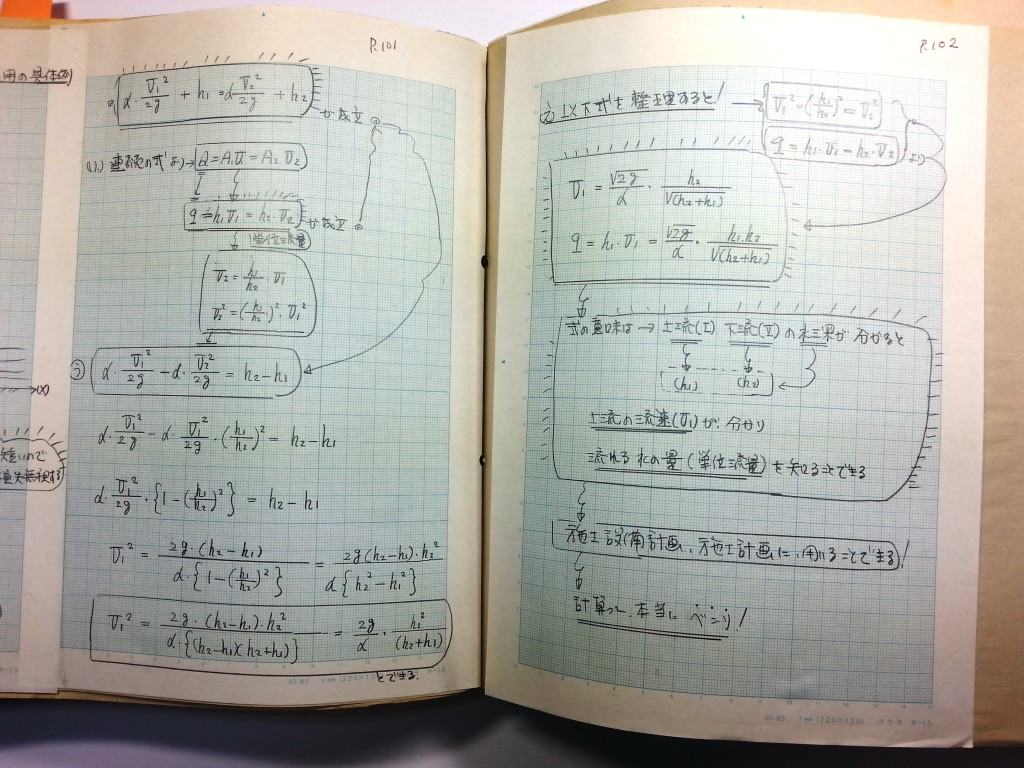 P.101
用の具体例)
α・v₁²/2g + h₁ = α v₂²/2g + h₂
が成立
連続の式より→ Q = A₁v₁ = A₂・v₂
q = h₁v₁ = h₂・v₂
が成立
(単位流量)
v₂ = h₁/h₂・v₁
v₂² = (h₁/h₂)²・v₁²
α・v₁²/2g − α・v₂²/2g = h₂−h₁
α・v₁²/2g − α・v₁²/2g・(h₁/h₂)² = h₂−h₁
α・v₁²/2g・{1−(h₁/h₂)²} = h₂−h₁
v₁² = 2g・(h₂−h₁)/α・{1−(h₁/h₂)²} = 2g(h₂−h₁)・h₂²/α{h₂²−h₁²}
v₁² = 2g・(h₂−h₁)・h₂²/α・{(h₂−h₁)(h₂+h₁)} = 2g/α・h₂²/(h₂+h₁)
とできる.
P.102
以下式を整理すると!
v₁²=(h₁/h₂)²=v₂²
q = h₁・v₁ = h₂・v₂
より
v₁ = √2g/α・h₂/√(h₂+h₁)
q = h₁・v₁ = √2g/α・h₁.h₂/√(h₂+h₁)
式の意味は → 上流(I) 下流(II)の水深が分かると
(h₁) (h₂)
上流の流速(v₁)が分かり
流れる水の量(単位流量)を知ることできる
施工設備計画、施工計画に、用いることできる!
計算って、本当に べんり!
BS-85 1mm(220×150) コクヨ ホ-15